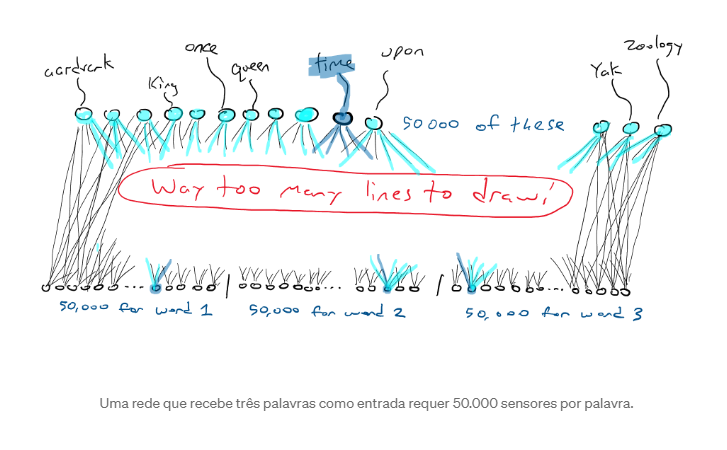 aardvark
King
once
queen
time
upon
50000 of these
Yak
Zoology
Way too many lines to draw!
50,000 for word 1
50,000 for word 2
50,000 for word 3
Uma rede que recebe três palavras como entrada requer 50.000 sensores por palavra.